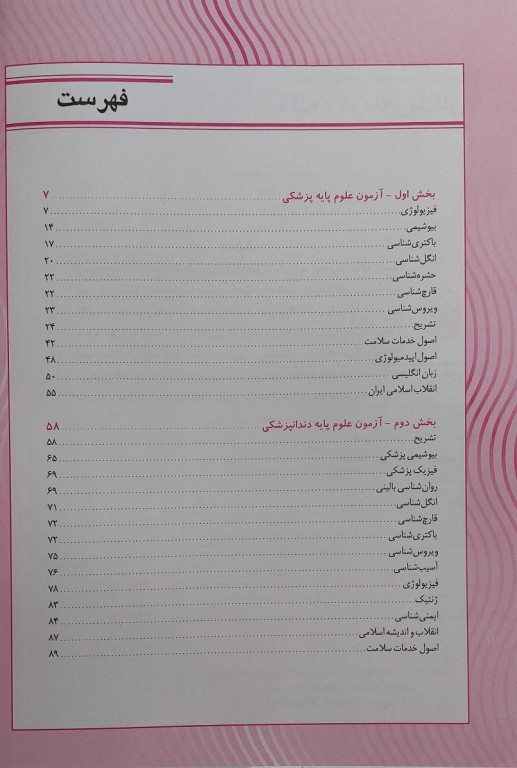 فهرست
بخش اول - آزمون علوم پایه پزشکی ۷
فیزیولوژی ۷
بیوشیمی ۱۴
باکتری‌شناسی ۱۷
انگل‌شناسی ۲۰
حشره‌شناسی ۲۲
قارچ‌شناسی ۲۲
ویروس‌شناسی ۲۳
تشریح ۲۴
اصول خدمات سلامت ۴۲
اصول اپیدمیولوژی ۴۸
زبان انگلیسی ۵۰
انقلاب اسلامی ایران ۵۵
بخش دوم - آزمون علوم پایه دندانپزشکی ۵۸
تشریح ۵۸
بیوشیمی پزشکی ۶۵
فیزیک پزشکی ۶۹
روان‌شناسی بالینی ۶۹
انگل‌شناسی ۷۱
قارچ‌شناسی ۷۲
باکتری‌شناسی ۷۲
ویروس‌شناسی ۷۵
آسیب‌شناسی ۷۶
فیزیولوژی ۷۸
ژنتیک ۸۳
ایمنی‌شناسی ۸۴
انقلاب و اندیشه اسلامی ۸۷
اصول خدمات سلامت ۸۹